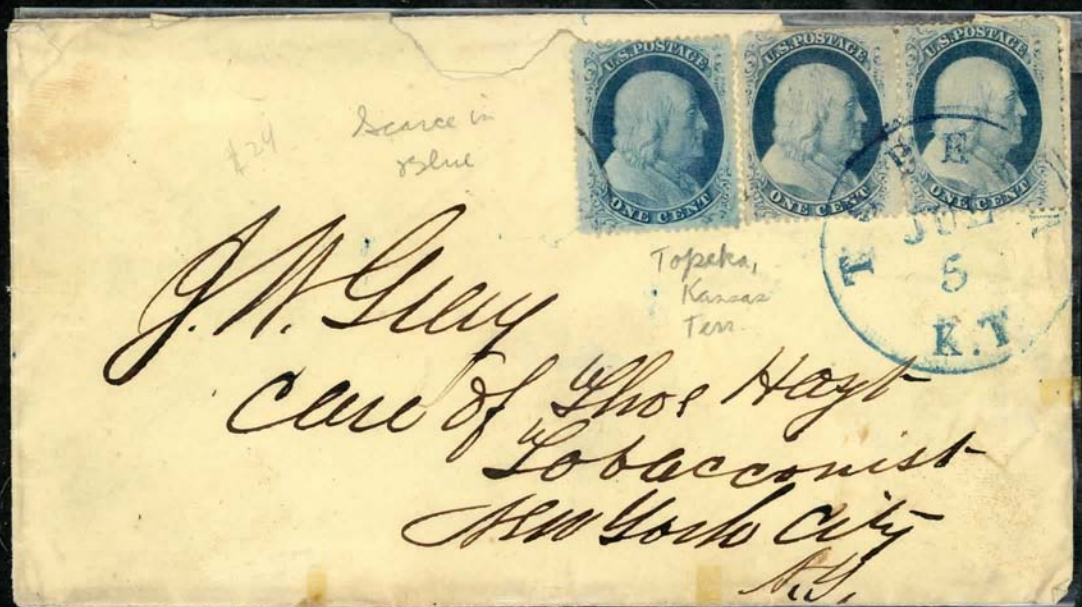 U.S. POSTAGE
ONE CENT
U.S. POSTAGE
ONE CENT
U.S. POSTAGE
ONE CENT
#24
Scarce in
Blue
Topeka,
Kansas
Terr.
JUL
5
K.T
J. W. Gray
Care of Thos Hoyt
Tobacconist
New York City
N.Y.